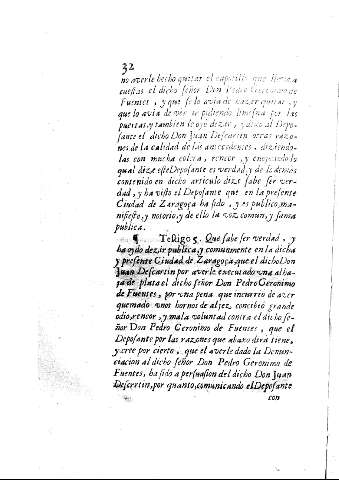 32
no averle hecho quitar el capotillo que lleva a
cuestas el dicho señor Don Pedro Geronimo de
Fuentes, y que se lo avia de hazer quitar, y
que lo avia de ver ir pidiendo limosna por las
puertas, y tambien le oyò dezir, y dixo al Depo-
sante el dicho Don Juan Descartin otras razo-
nes de la calidad de las antecedentes, diziendo-
las con mucha colera, rencor, y enojo, todo lo
qual dize este Deposante es verdad, y de lo demàs
contenido en dicho articulo dize sabe ser ver-
dad, y ha visto el Deposante que en la presente
Ciudad de Zaragoça ha sido, y es publico, ma-
nifiesto, y notorio, y de ello la voz comun, y fama
publica.
¶ Testigo 5. Que sabe ser verdad, y
ha oydo dezir publica, y comunmente en la dicha
y presente Ciudad de Zaragoça, que el dicho Don
Juan Descartin por averle executado una alha-
ja de plata el dicho señor Don Pedro Geronimo
de Fuentes, por una pena que incurriò de aver
quemado unos hornos de aljez, concibiò grande
odio, rencor, y mala voluntad contra el dicho se-
ñor Don Pedro Geronimo de Fuentes, que el
Deposante por las razones que abaxo dirà tiene,
y cree por cierto, que el averle dado la Denun-
ciacion al dicho señor Don Pedro Geronimo de
Fuentes, ha sido a persuasion del dicho Don Juan
Descartin, por quanto, comunicando el Deposante
con